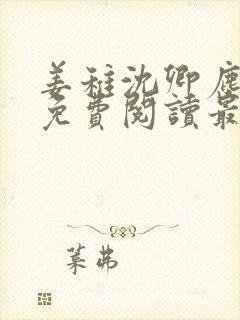 姜稚沈卿鹿
免費閱讀最
葉弗